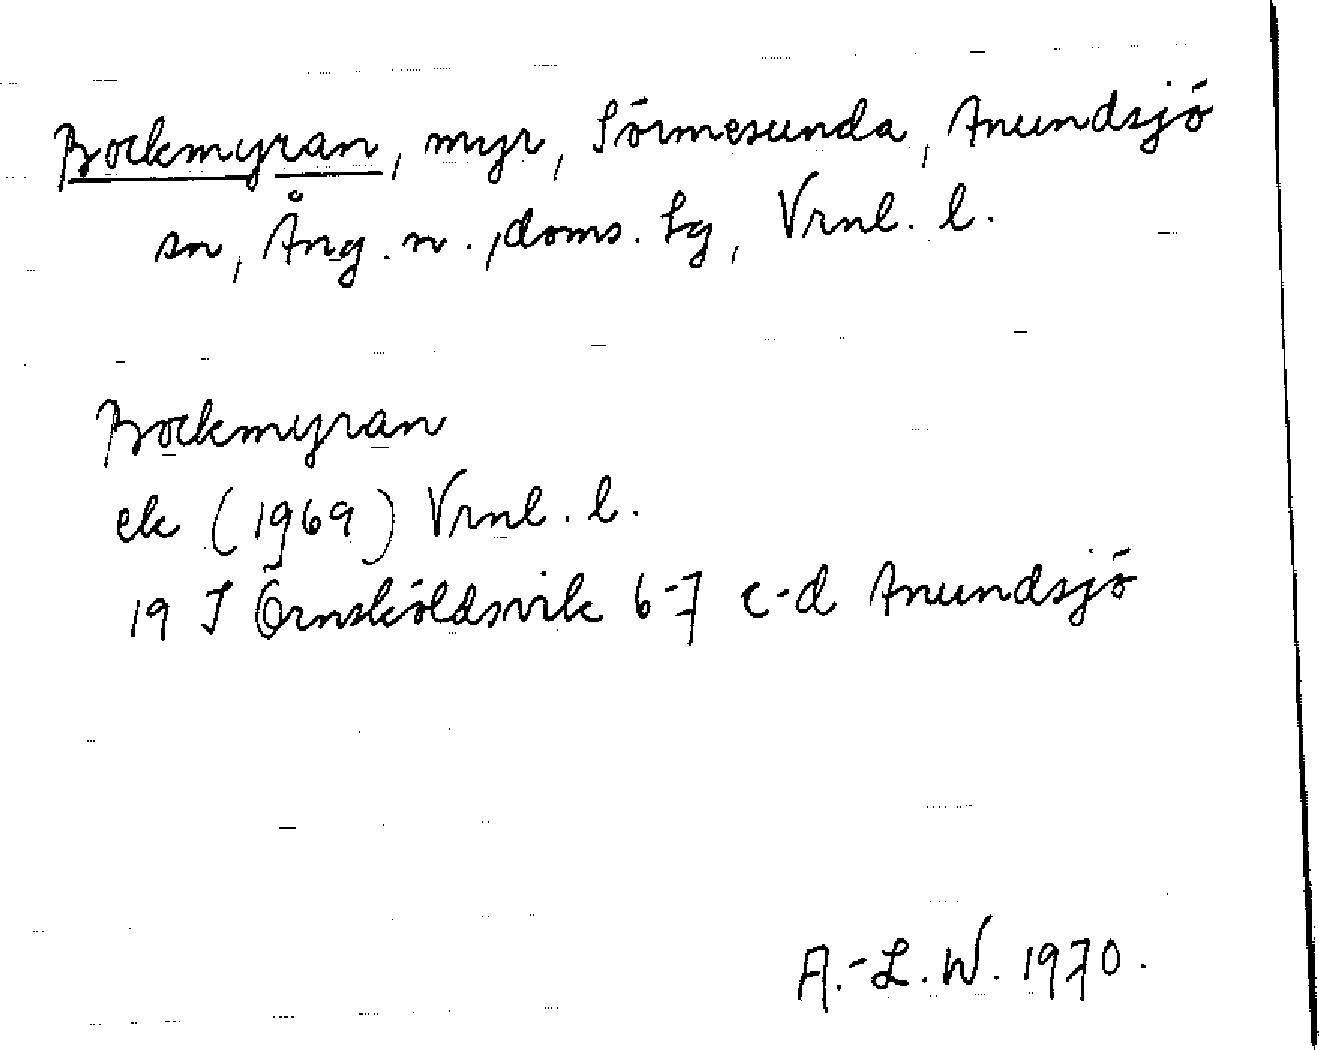 Bockmyran, myr, Sörmesunda, Anundsjö
sn, Ång. n., doms. Lg, Vrnl. l.
Bockmyran
ek (1969) Vrnl. l.
19 J Örnsköldsvik 6-7 c-d Anundsjö
A.-L. W. 1970.